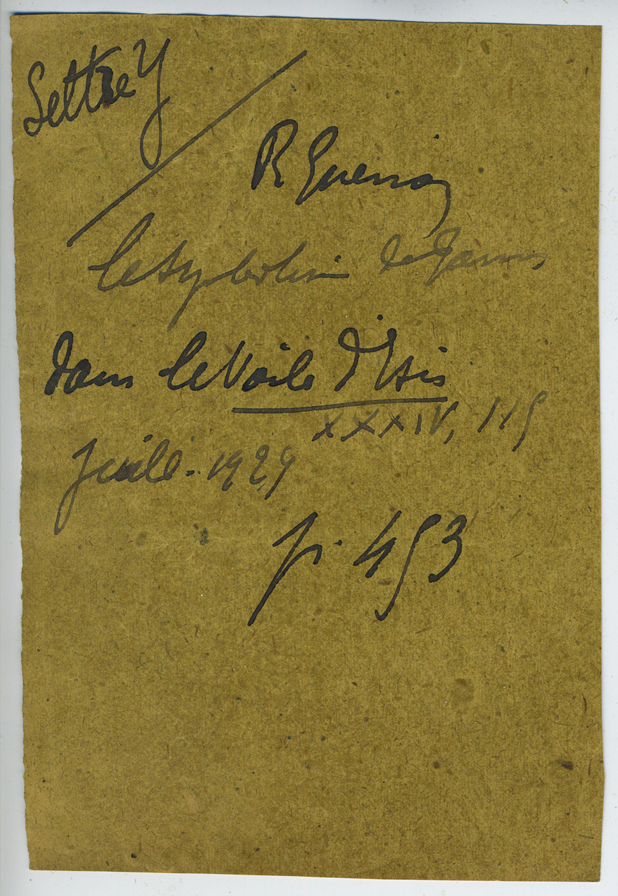 Lettre Y
R Guenon
le symbolisme de Janus
dans le Voile d'Isis
XXXIV, 115
Juill. 1929
p. 493